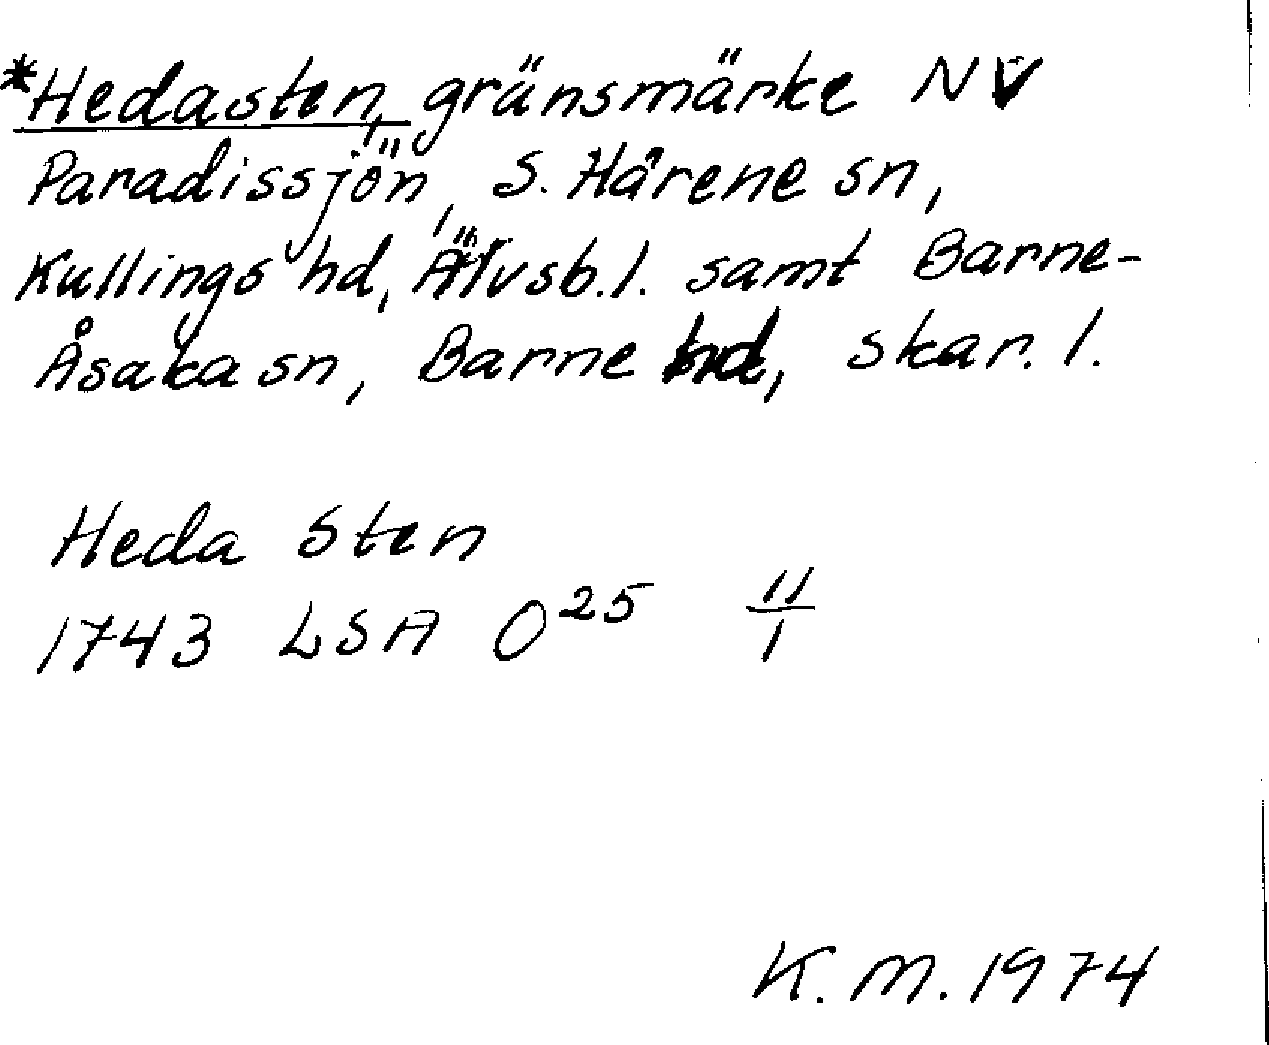 *Hedasten, gränsmärke NV
Paradissjön, S. Härene sn,
Kullings hd, Älvsb.l. samt Barne-
Åsaka sn, Barne hd, skar. l.
Heda Sten
1743 LSA O²⁵ 11/1
K.M. 1974